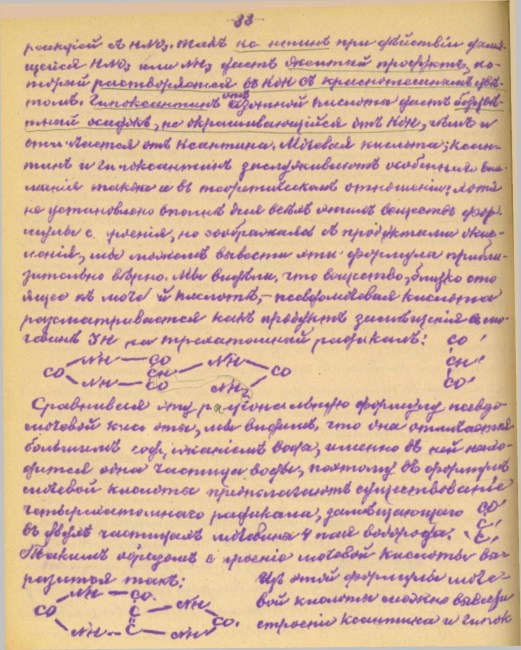 -83-
реакцiей с HNO₃. Такъ ксантинъ при действiи дымя-
щейся HNO₃ или NH₃ даетъ желтый продуктъ, ко-
торый растворяется въ KOH съ краснотемнымъ цвѣ-
томъ. Гипоксантинъ отъ азотной кислоты даетъ безцвѣ-
тный осадокъ, не окрашивающiйся отъ KOH, чѣмъ и
отличается отъ ксантина. Мочевая кислота, ксан-
тинъ и гипоксантинъ заслуживаютъ особенным вни-
манiя также и въ теоретическомъ отношенiи: хотя
не установлено вполнѣ для всѣхъ этихъ веществъ фор-
мулы строенiя, но сообразжаясь съ продуктами окис-
ленiя, мы можемъ вывести эти формулы прибли-
зительно вѣрно. Мы видѣли, что вещество, близко сто
ящее къ мочевой кислотѣ, - псевдомочевая кислота
разсматривается какъ продуктъ замѣщенiя въ мо-
чевинѣ 3H на трехатомный радикалъ: CO'
NH — CO NH CH'
CO CH CO CO'
NH — CO NH₂
Сравнивая эту рацiональную формулу псевдо-
мочевой кислоты, мы видимъ, что она отличается
большимъ содержанiемъ воды, именно въ ней нахо-
дится одна частица воды, поэтому въ формулѣ
мочевой кислоты предполагаютъ существованiе
четырехатомнаго радикала, замѣщающаго CO'
въ двухъ частицахъ мочевины 4 пая водорода. C'
Такимъ образомъ строенiе мочевой кислоты вы- C'
разится такъ: Изъ этой формулы моче-
NH — CO вой кислоты можно вывести
CO C — NH CO. строенiе ксантина и гипок
NH — C — NH